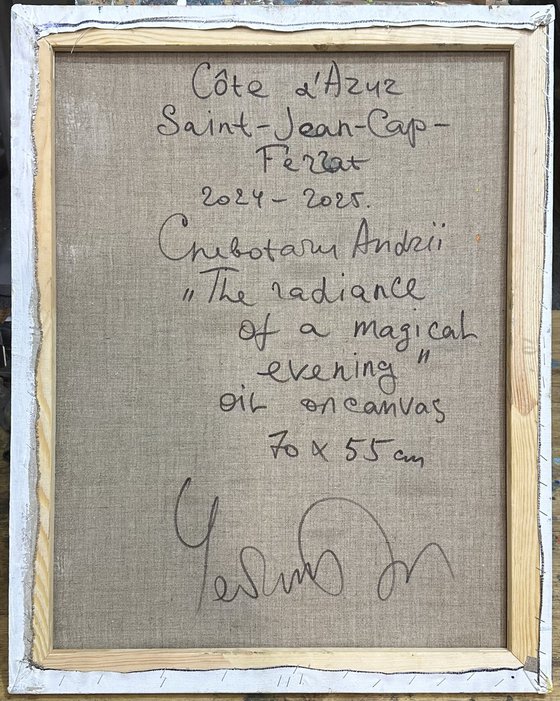 Côte d'Azur
Saint-Jean-Cap-
Ferrat
2024 - 2025.
Chebotaru Andrii
„The radiance
of a magical
evening"
oil on canvas
70 x 55 cm